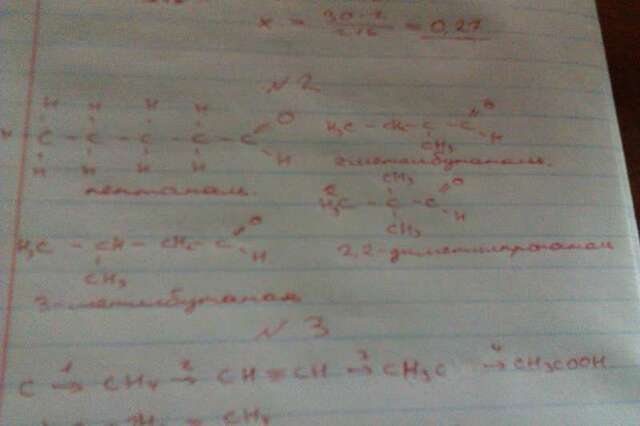 x = = 0,27
№2
H H H H
H - C - C - C - C - C O
H H H H H
пентаналь
H₃C - CH - C O H
CH₃
2-метилбутаналь.
CH₃
H₃C - C - C O H
CH₃
2,2-диметилпропаналь
H₃C - CH - CH₂ - C O H
CH₃
3-метилбутаналь
№3
C 1→ CH₄ 2→ CH ≡ CH 3→ CH₃C 4→ CH₃COOH
CH₄